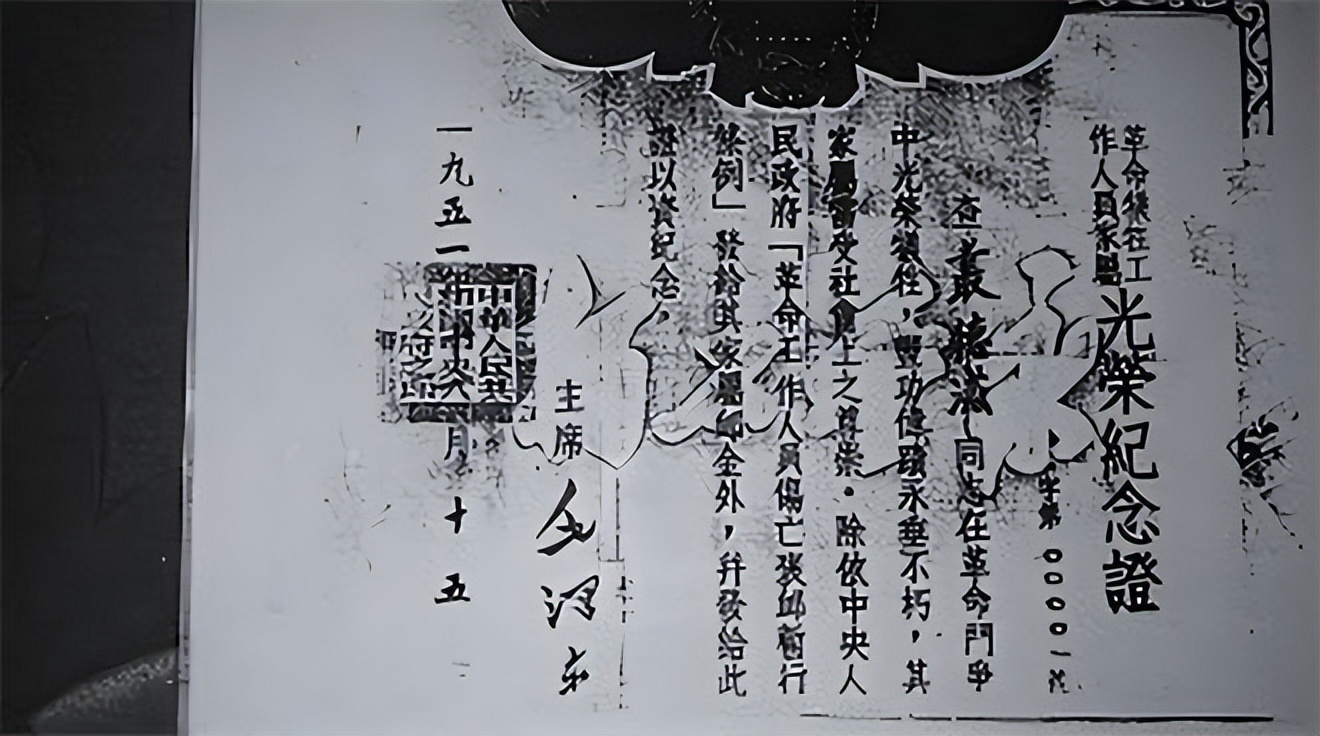 革命犧牲工
作人員家屬
光榮紀念證
字第〇〇〇〇一號
查叢德滋同志在革命鬥爭
中光榮犧牲，豐功偉蹟永垂不朽，其
家屬當受社會上之尊崇。除依中央人
民政府「革命工作人員傷亡褒卹暫行
條例」發給其家屬卹金外，并發給此
證以資紀念。
主席
毛澤東
一九五一年 月十五
中華人民共
和國中央人
民政府之印